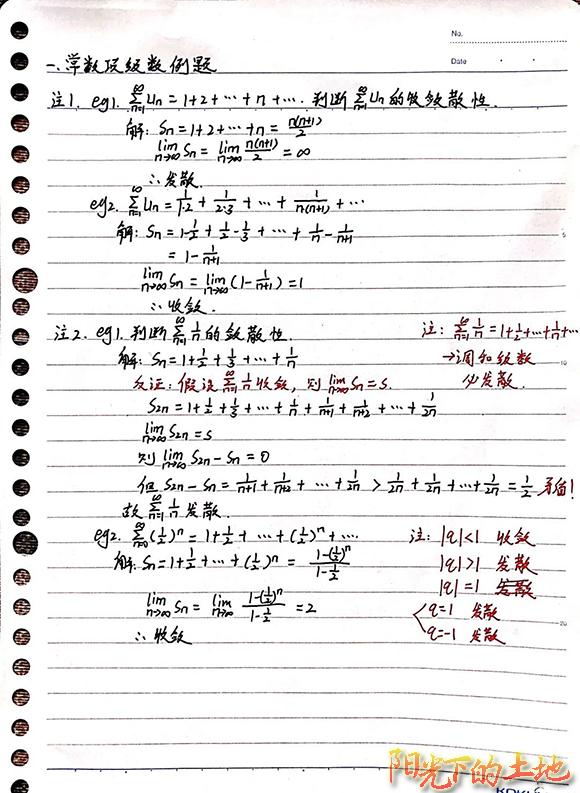 No.
Date
一、常数项级数例题
注1. eg1. ∑_{n=1}^{∞} Un = 1+2+…+n+…. 判断 ∑_{n=1}^{∞} Un 的收敛散性.
解: Sn = 1+2+…+n = n(n+1)/2
lim_{n→∞} Sn = lim_{n→∞} n(n+1)/2 = ∞
∴发散.
eg2. ∑_{n=1}^{∞} Un = 1/(1·2) + 1/(2·3) + … + 1/(n·(n+1)) + …
解: Sn = 1-1/2 + 1/2 - 1/3 + … + 1/n - 1/(n+1)
= 1 - 1/(n+1)
lim_{n→∞} Sn = lim_{n→∞} (1 - 1/(n+1)) = 1
∴收敛.
注2. eg1. 判断 ∑_{n=1}^{∞} 1/n 的敛散性. 注: ∑_{n=1}^{∞} 1/n = 1+1/2+…+1/n+…
解: Sn = 1+1/2+1/3+…+1/n →调和级数
反证: 假设 ∑_{n=1}^{∞} 1/n 收敛, 则 lim_{n→∞} Sn = s. 必发散.
S2n = 1+1/2+1/3+…+1/n+1/(n+1)+1/(n+2)+…+1/2n
lim_{n→∞} S2n = s
则 lim_{n→∞} S2n - Sn = 0
但 S2n - Sn = 1/(n+1) + 1/(n+2) + … + 1/2n > 1/2n + 1/2n + … + 1/2n = 1/2 矛盾!
故 ∑_{n=1}^{∞} 1/n 发散.
eg2. ∑_{n=0}^{∞} (1/2)^n = 1+1/2+…+(1/2)^n+… 注: |q|<1 收敛
解: Sn = 1+1/2+…+(1/2)^n = (1-(1/2)^n)/(1-1/2) |q|>1 发散
|q|=1 发散
lim_{n→∞} Sn = lim_{n→∞} (1-(1/2)^n)/(1-1/2) = 2 q=1 发散
∴收敛 q=-1 发散
阳光下的土地